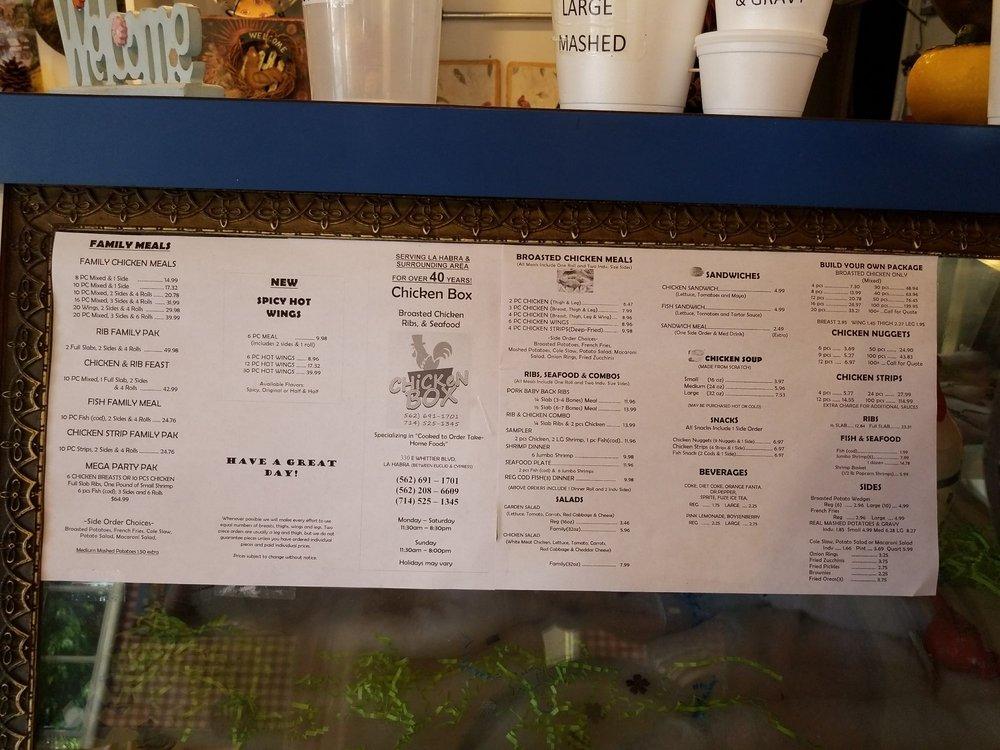 Welcome
WELCOME
LARGE
MASHED
& GRAVY
FAMILY MEALS
FAMILY CHICKEN MEALS
8 PC Mixed & 1 Side ......... 14.99
10 PC Mixed & 1 Side ......... 17.32
10 PC Mixed, 2 Sides & 4 Rolls ...... 20.78
16 PC Mixed, 3 Sides & 4 Rolls ...... 31.99
20 Wings, 2 Sides & 4 Rolls ...... 29.98
20 PC Mixed, 3 Sides & 6 Rolls ...... 39.99
RIB FAMILY PAK
2 Full Slabs, 2 Sides & 4 Rolls ......... 49.98
CHICKEN & RIB FEAST
10 PC Mixed, 1 Full Slab, 2 Sides
& 4 Rolls ......... 42.99
FISH FAMILY MEAL
10 PC Fish (cod), 2 Sides & 4 Rolls ...... 24.76
CHICKEN STRIP FAMILY PAK
10 PC Strips, 2 Sides & 4 Rolls ...... 24.76
MEGA PARTY PAK
6 CHICKEN BREASTS OR 10 PCS CHICKEN
Full Slab Ribs, One Pound of Small Shrimp
6 pcs Fish (cod), 3 Sides and 6 Rolls
$64.99
~Side Order Choices~
Broasted Potatoes, French Fries, Cole Slaw,
Potato Salad, Macaroni Salad,
Medium Mashed Potatoes 1.50 extra
NEW
SPICY HOT
WINGS
6 PC MEAL ......... 9.98
(Includes 2 sides & 1 roll)
6 PC HOT WINGS ...... 8.96
12 PC HOT WINGS ...... 17.32
30 PC HOT WINGS ...... 39.99
Available Flavors:
Spicy, Original or Half & Half
HAVE A GREAT
DAY!
Whenever possible we will make every effort to use
equal numbers of breasts, thighs, wings and legs. Two
piece orders are usually a leg and thigh, but we do not
guarantee pieces unless you have ordered individual
pieces and paid individual prices.
Prices subject to change without notice.
SERVING LA HABRA &
SURROUNDING AREA
FOR OVER 40 YEARS!
Chicken Box
Broasted Chicken
Ribs, & Seafood
CHICKEN
BOX
562) 691-1701
714) 525-1345
Specializing in "Cooked to Order Take-
Home Foods"
330 E WHITTIER BLVD.
LA HABRA (BETWEEN EUCLID & CYPRESS)
(562) 691 – 1701
(562) 208 – 6609
(714) 525 – 1345
Monday – Saturday
11:30am – 8:30pm
Sunday
11:30am – 8:00pm
Holidays may vary
BROASTED CHICKEN MEALS
(All Meals Include One Roll and Two Indv. Size Sides)
2 PC CHICKEN (Thigh & Leg) ......... 6.47
3 PC CHICKEN (Breast, Thigh & Leg) ......... 7.99
4 PC CHICKEN (Breast, Thigh, Leg & Wing) ...... 8.96
6 PC CHICKEN WINGS ......... 8.96
4 PC CHICKEN STRIPS(Deep-Fried) ......... 9.98
~Side Order Choices~
Broasted Potatoes, French Fries,
Mashed Potatoes, Cole Slaw, Potato Salad, Macaroni
Salad, Onion Rings, Fried Zucchini
RIBS, SEAFOOD & COMBOS
(All Meals Include One Roll and Two Indv. Size Sides)
PORK BABY BACK RIBS
¼ Slab (3-4 Bones) Meal ......... 11.96
½ Slab (6-7 Bones) Meal ......... 13.99
RIB & CHICKEN COMBO
¼ Slab Ribs & 2 pcs Chicken ......... 13.99
SAMPLER
2 pcs Chicken, 2 LG Shrimp, 1 pc Fish(cod).. 11.96
SHRIMP DINNER
6 Jumbo Shrimp ......... 9.98
SEAFOOD PLATE ......... 11.96
2 pcs Fish (cod) & 6 Jumbo Shrimps
REG COD FISH(3) DINNER ......... 9.98
(ABOVE ORDERS INCLUDE 1 Dinner Roll and 2 Indv Sides)
SALADS
GARDEN SALAD
(Lettuce, Tomato, Carrots, Red Cabbage & Cheese)
Reg (16oz) ......... 3.46
Family(32oz) ......... 5.96
CHICKEN SALAD
(White Meat Chicken, Lettuce, Tomato, Carrots,
Red Cabbage & Cheddar Cheese)
Family(32oz) ......... 7.99
SANDWICHES
CHICKEN SANDWICH ......... 4.99
(Lettuce, Tomatoes and Mayo)
FISH SANDWICH ......... 4.99
(Lettuce, Tomatoes and Tartar Sauce)
SANDWICH MEAL ......... 2.49
(One Side Order & Med Drink) (Extra)
CHICKEN SOUP
(MADE FROM SCRATCH)
Small (16 oz) ......... 3.97
Medium (24 oz) ......... 5.96
Large (32 oz) ......... 7.53
(MAY BE PURCHASED HOT OR COLD)
SNACKS
All Snacks Include 1 Side Order
Chicken Nuggets (9 Nuggets & 1 Side) ...... 6.97
Chicken Strips (4 Strips & 1 Side) ...... 6.97
Fish Snack (2 Cods & 1 Side) ...... 6.97
BEVERAGES
COKE, DIET COKE, ORANGE FANTA
DR.PEPPER,
SPRITE, FUZE ICE TEA,
REG ...... 1.75 LARGE ...... 2.25
PINK LEMONADE, BOYSENBERRY
REG ...... 2.25 LARGE ...... 2.75
BUILD YOUR OWN PACKAGE
BROASTED CHICKEN ONLY
(Mixed)
4 pcs ......... 7.30 30 pcs ......... 48.94
8 pcs ......... 13.99 40 pcs ......... 63.94
12 pcs ......... 20.78 50 pcs ......... 76.45
16 pcs ......... 28.97 100 pcs ......... 139.95
20 pcs ......... 33.21 100+ ...Call for Quote
BREAST 2.95 WING 1.45 THIGH 2.27 LEG 1.95
CHICKEN NUGGETS
6 pcs ...... 3.69 50 pcs ...... 24.90
9 pcs ...... 5.27 100 pcs ...... 43.83
12 pcs ...... 6.97 100+ ...Call for Quote
CHICKEN STRIPS
4 pcs ...... 5.77 24 pcs ...... 27.99
12 pcs ...... 14.55 100 pcs ...... 114.99
EXTRA CHARGE FOR ADDITIONAL SAUCES
RIBS
½ SLAB..... 12.84 Full SLAB....... 23.31
FISH & SEAFOOD
Fish (cod) ......... 1.99
Jumbo Shrimp(6) ......... 7.99
1 dozen ......... 14.78
Shrimp Basket
(1/2 lb Popcorn Shrimps) ... 5.99
SIDES
Broasted Potato Wedges
Reg (6) ...... 2.96 Large (10) ...... 4.99
French Fries
Reg ...... 2.96 Large ...... 4.99
REAL MASHED POTATOES & GRAVY
Indv. 1.85 Small 4.99 Med 6.28 LG 8.27
Cole Slaw, Potato Salad or Macaroni Salad
Indv ..... 1.66 Pint .... 3.69 Quart 5.99
Onion Rings ......... 3.25
Fried Zucchinis ......... 3.75
Fried Pickles ......... 2.75
Brownies ......... 2.25
Fried Oreos(3) ......... 3.75